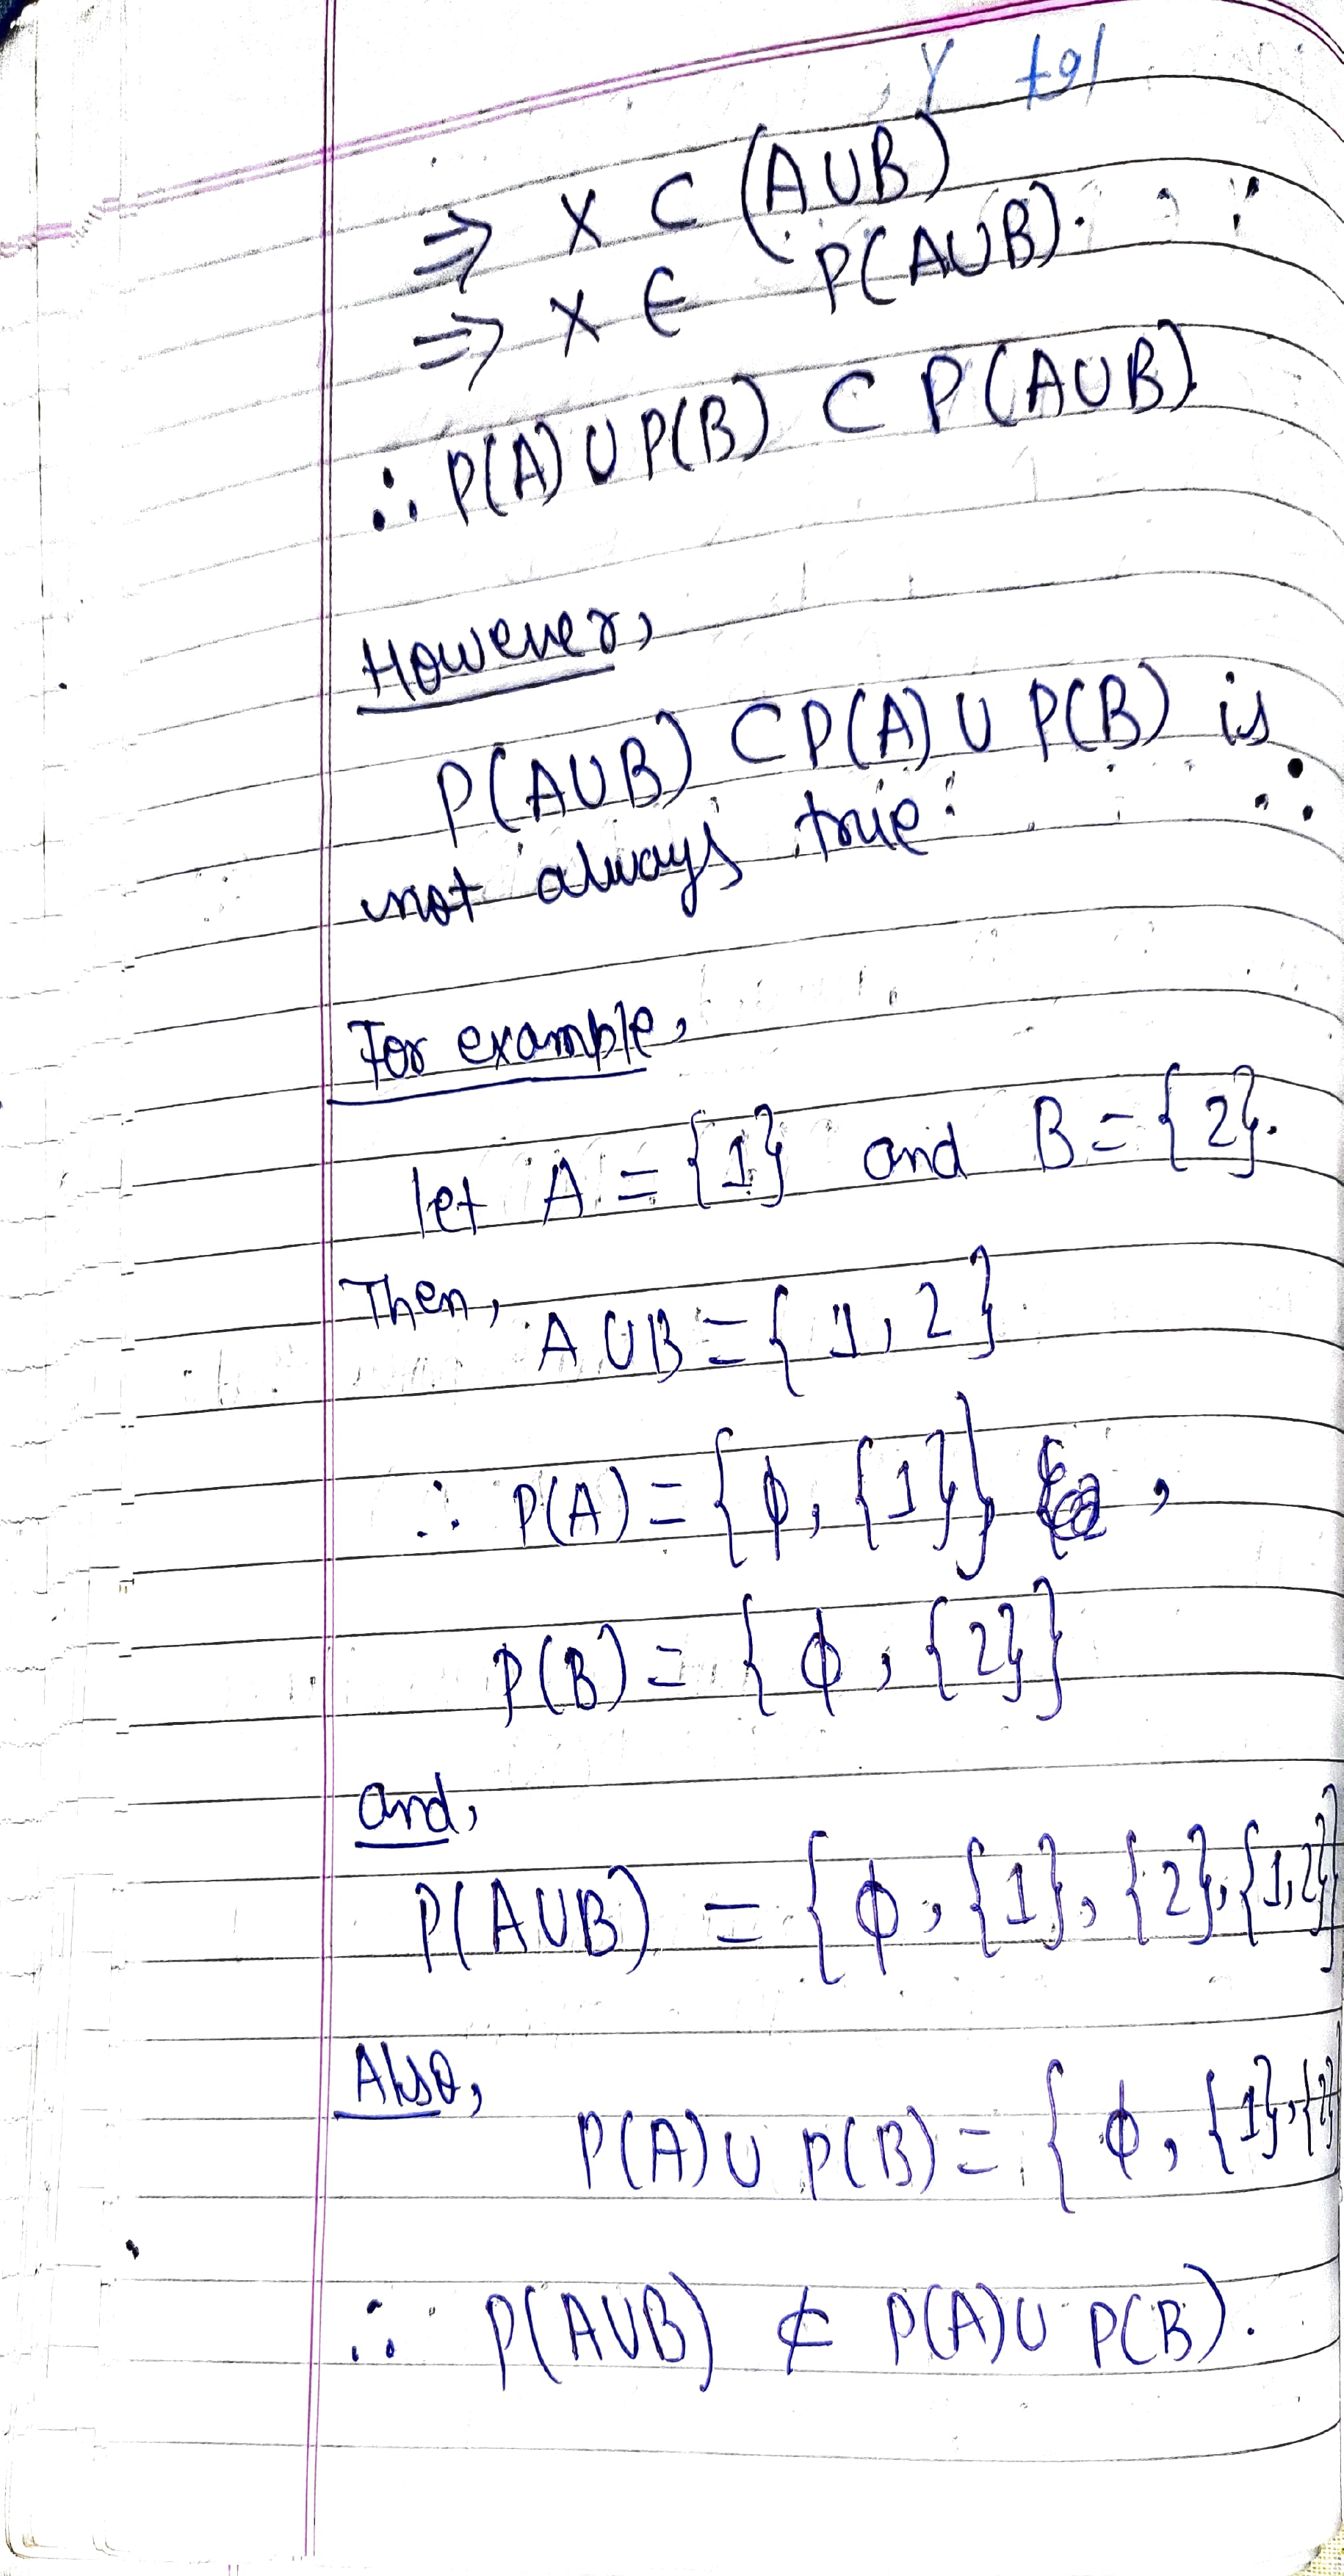 ⇒ X ⊂ (A∪B)
⇒ X ∈ P(A∪B).
∴ P(A) ∪ P(B) ⊂ P(A∪B)
However,
P(A∪B) ⊂ P(A) ∪ P(B) is
not always true.
For example,
let A = {1} and B = {2}.
Then,
A ∪ B = {1, 2}
∴ P(A) = {ϕ, {1}} ,
P(B) = {ϕ, {2}}
and,
P(A∪B) = {ϕ, {1}, {2}, {1,2}}
Also,
P(A) ∪ P(B) = {ϕ, {1}, {2}
∴ P(A∪B) ⊄ P(A) ∪ P(B).